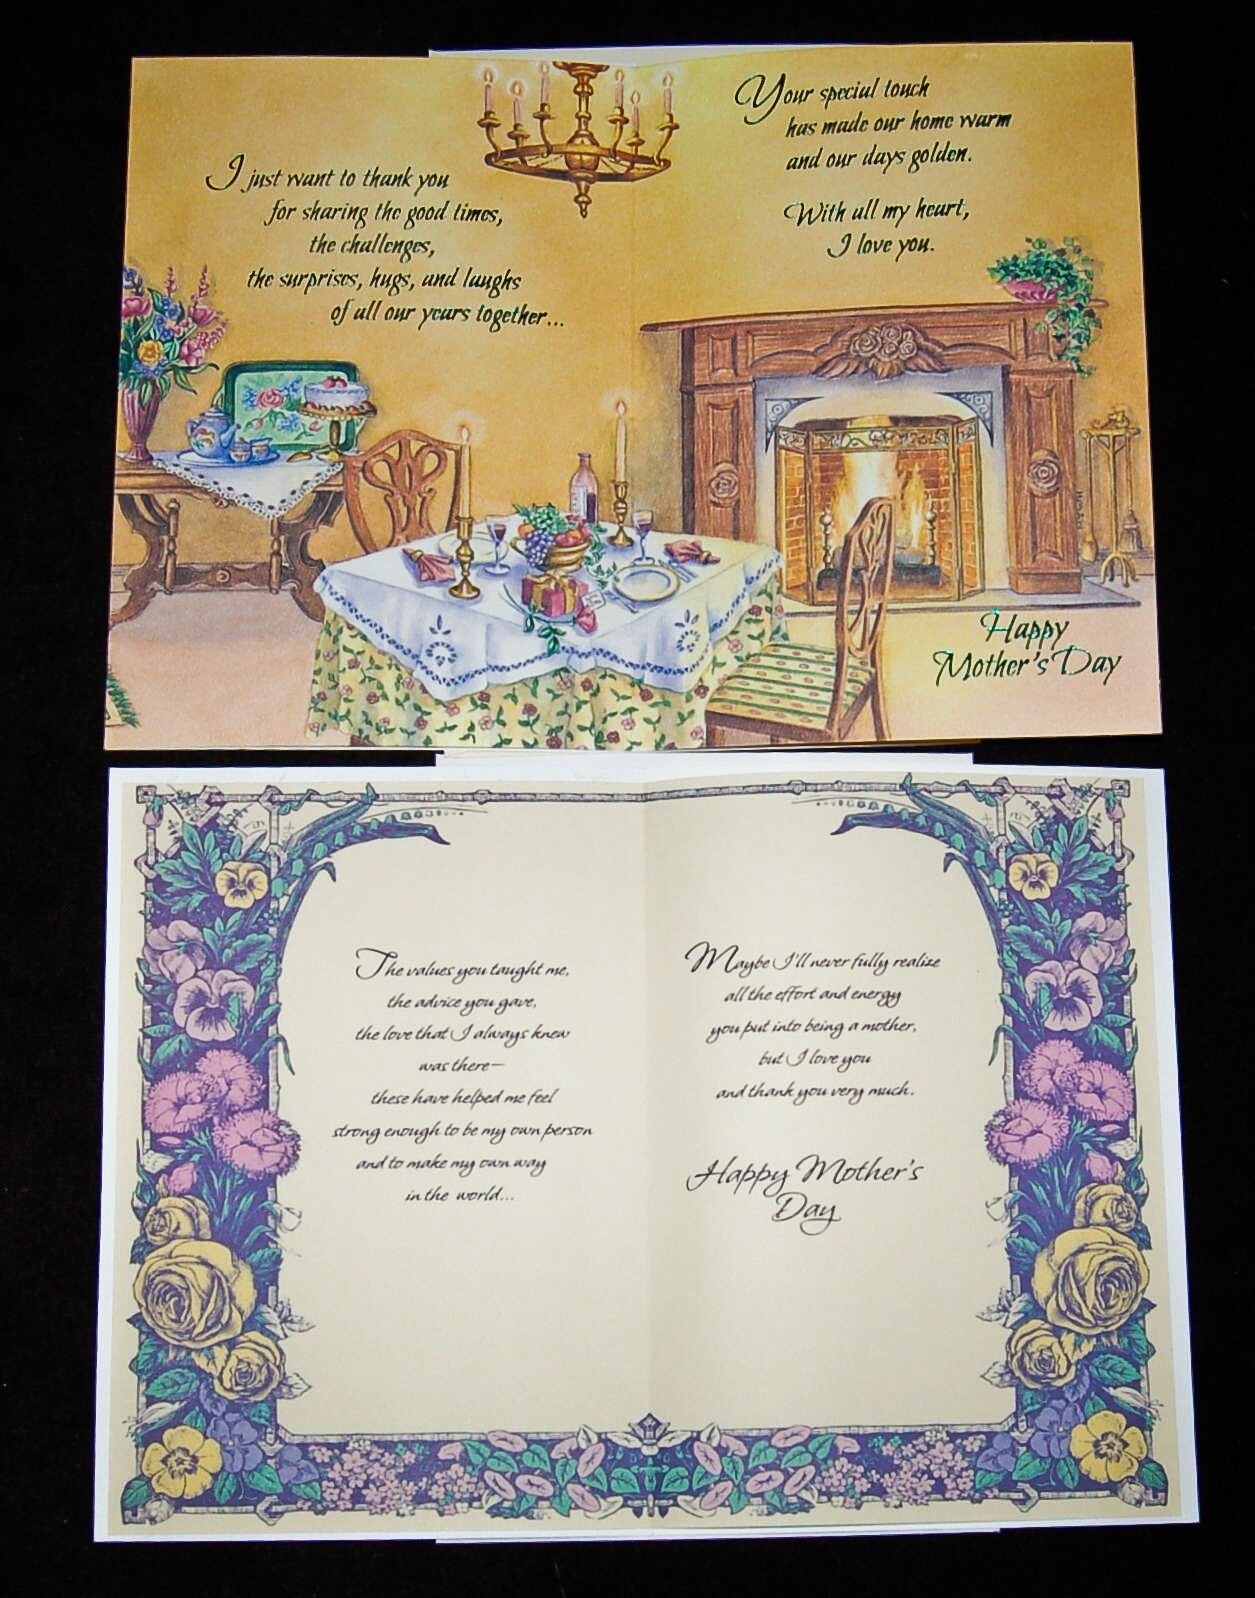 I just want to thank you
for sharing the good times,
the challenges,
the surprises, hugs, and laughs
of all our years together...
Your special touch
has made our home warm
and our days golden.
With all my heart,
I love you.
Happy
Mother's Day
The values you taught me,
the advice you gave,
the love that I always knew
was there—
these have helped me feel
strong enough to be my own person
and to make my own way
in the world...
Maybe I'll never fully realize
all the effort and energy
you put into being a mother,
but I love you
and thank you very much.
Happy Mother's
Day